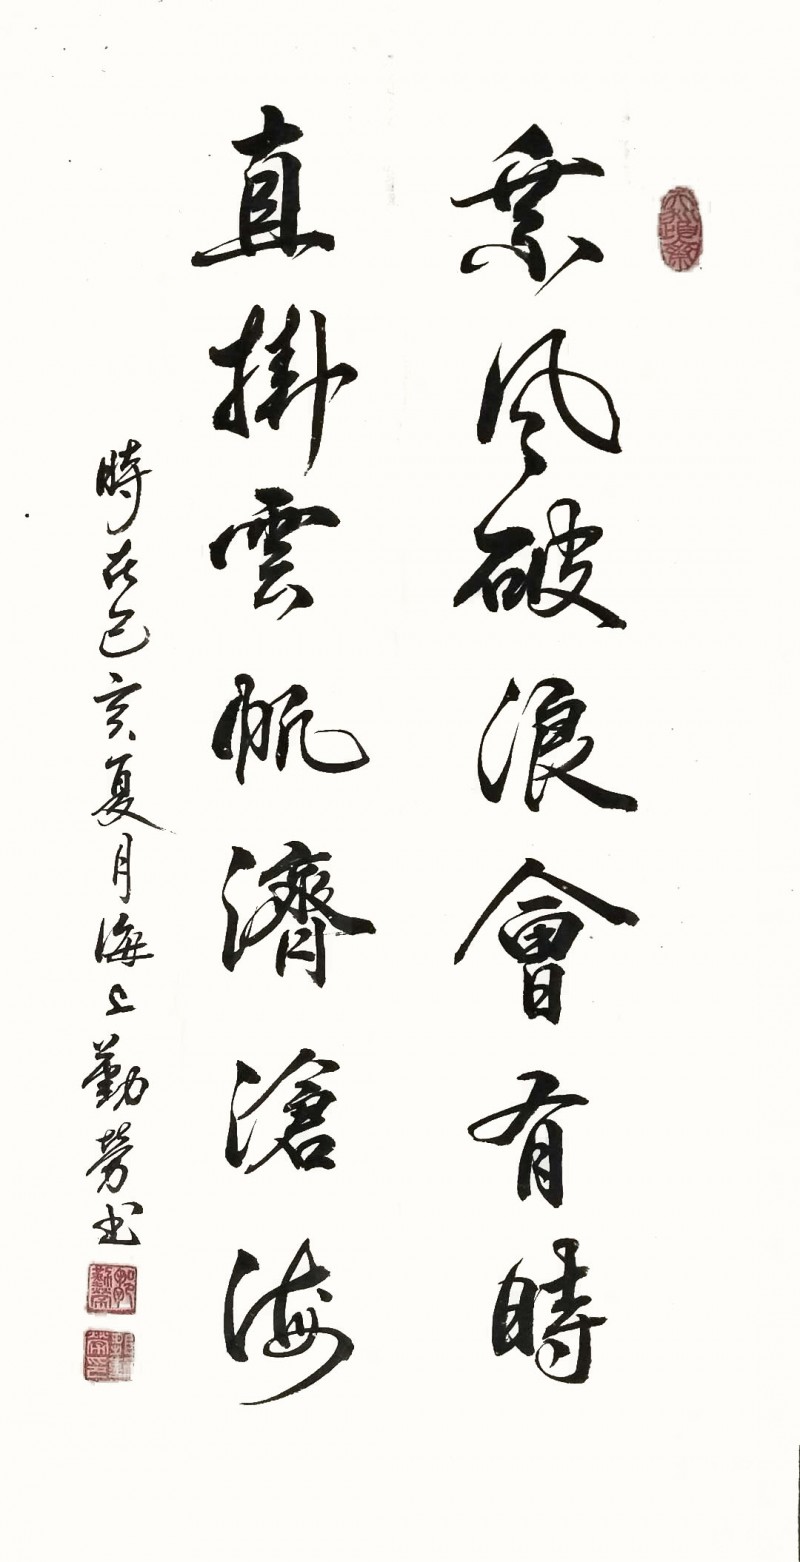 乘风破浪會有時
直掛雲帆濟滄海
時在己亥夏月海上勤劳书